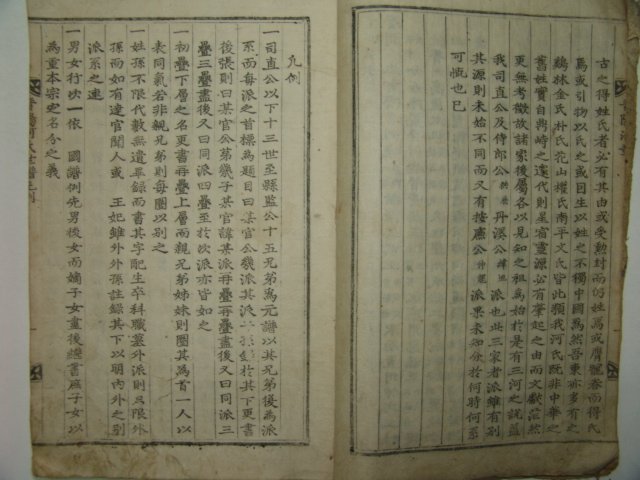 古之得姓氏者必有其由或受勳封而何姓焉或膺寵眷而得氏
焉或引物以氏之或因生以姓之不獨中國爲然吾東亦多有之
鷄林金氏朴氏花山權氏南平文氏皆此類我河氏旣非中華之
舊姓實自羅時之遠代則星宿靈源必有肇起之由而文獻茫然
更無考徵故諸家後屬各以見知之祖爲始於是有三河之說蓋
我司直公及侍郎公拱辰丹溪公緯地派也此三家者派雖有別
其源則未始不同而又有按廉公派果未知分於何時何系
可慨也已
凡例
一司直公以下十三世至縣監公十五兄弟爲元譜以其兄弟後爲派
系而每派之首標爲題目曰某官公幾派其派於其下更書
後張則曰某官公第幾子某官諱某派再疊再疊盡後又曰同派三
疊三疊盡後又曰同派四疊至於次派亦皆如之
一初疊下層之名更書再疊上層而親兄弟姊妹則圈其爲首一人以
表同氣若非親兄弟則每圈以別之
一姓孫不限代數無遺畢錄而書其字配生卒科職墓外派則只限外
孫而如有達官聞人或 王妃雖外外孫註錄其下以明內外之別
派系之遠
一男女行次一依 國譜例先男後女而嫡子女盡後繼書庶子女以
爲重本宗定名分之義